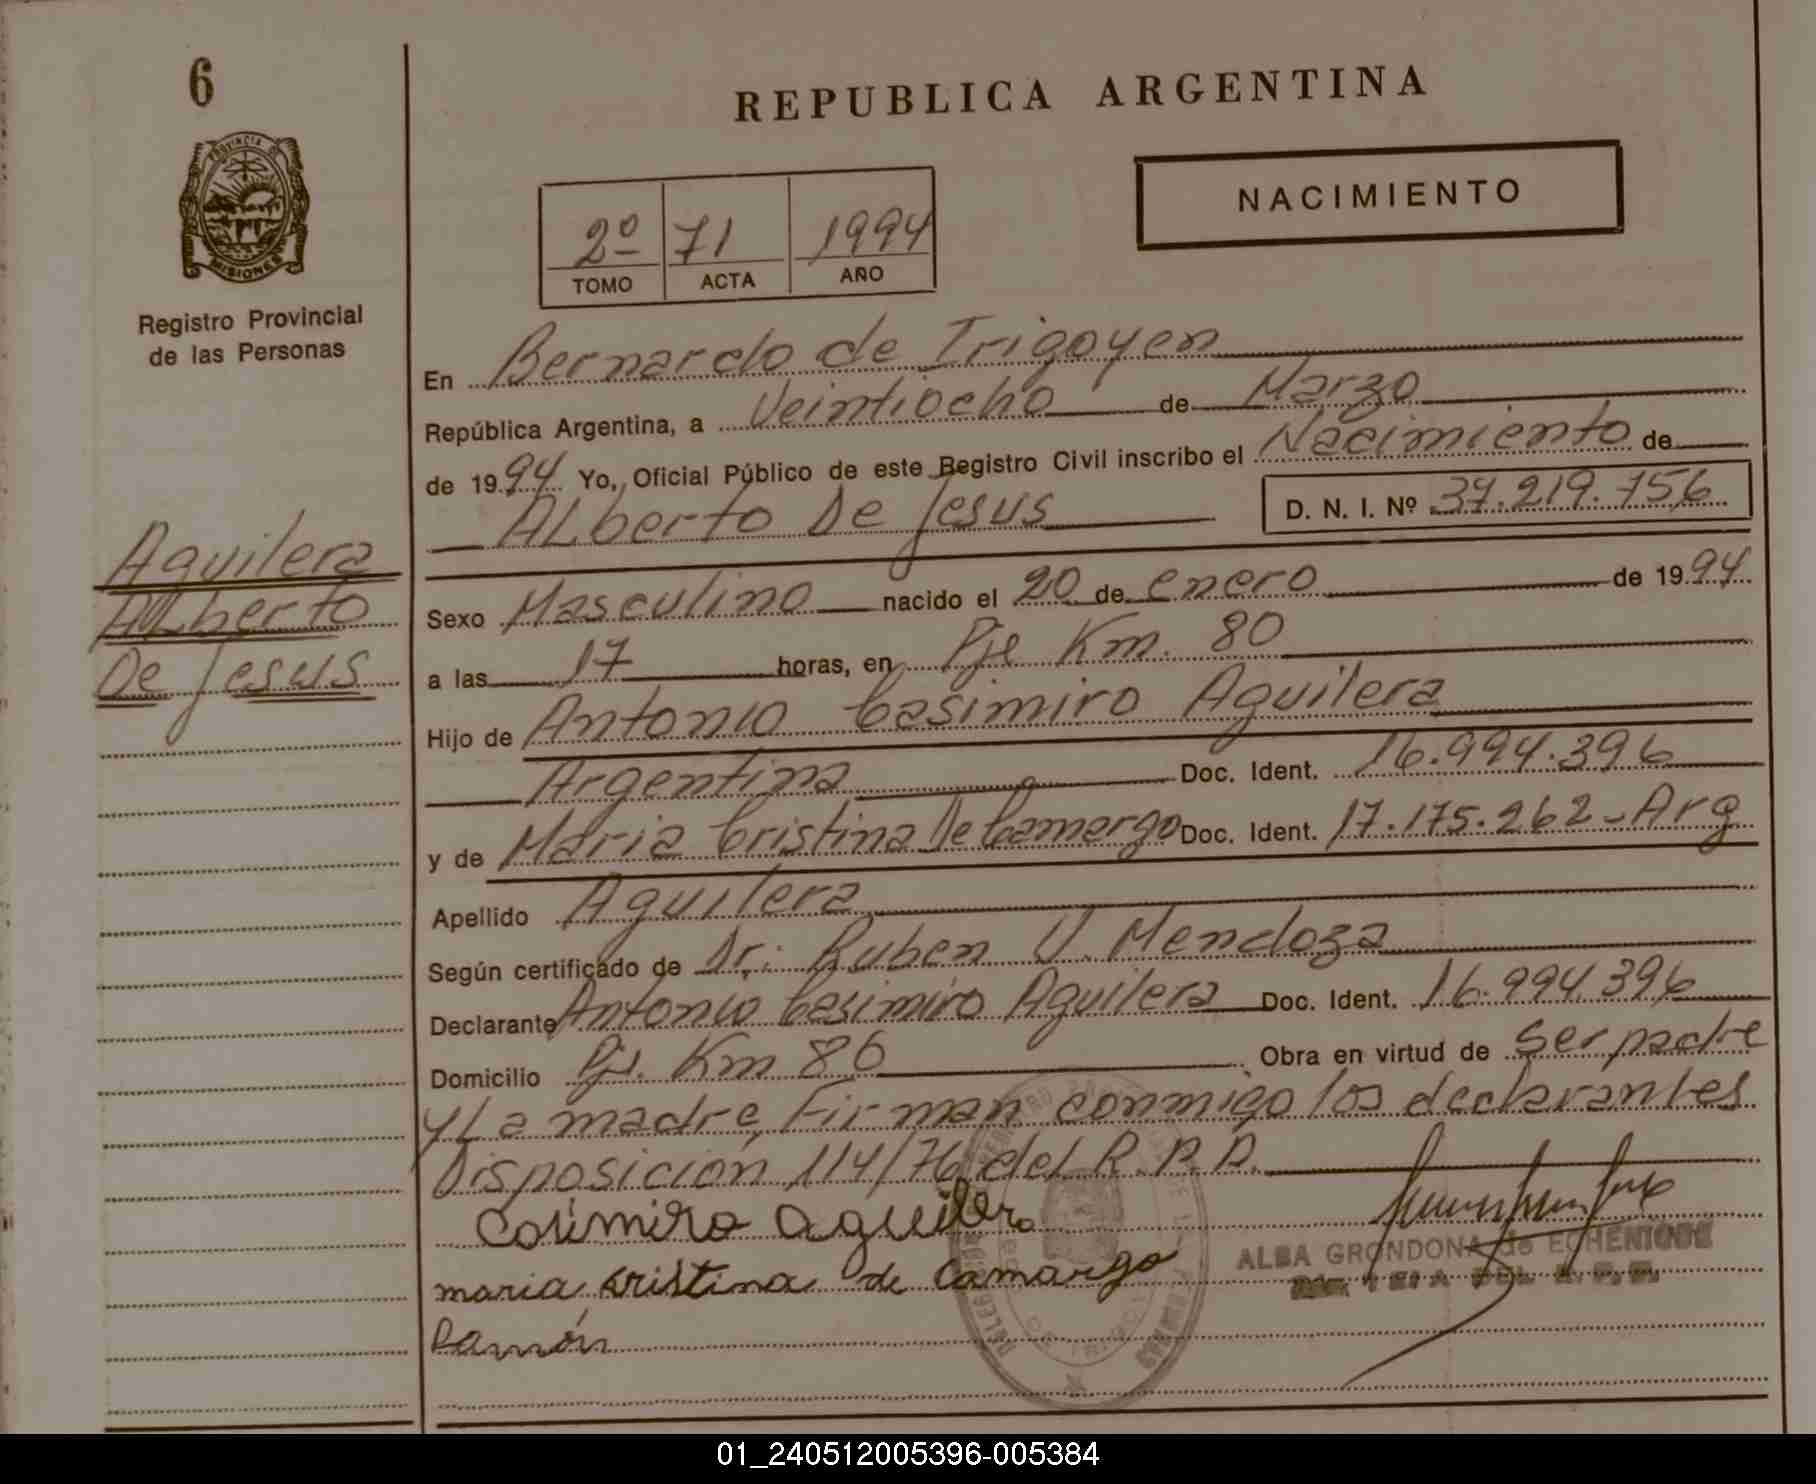 6
REPUBLICA ARGENTINA
PROVINCIA DE
MISIONES
Registro Provincial
de las Personas
NACIMIENTO
2º 71 1994
TOMO ACTA AÑO
En Bernardo de Irigoyen
República Argentina, a Veintiocho de Marzo
de 1994 Yo, Oficial Público de este Registro Civil inscribo el Nacimiento de
ALberto De Jesus D. N. I. Nº 37.219.756
Aguilera
ALberto
De Jesus
Sexo Masculino nacido el 20 de enero de 1994
a las 17 horas, en Pje Km. 80
Hijo de Antonio Casimiro Aguilera
Argentina Doc. Ident. 16.994.396
y de Maria Cristina De Camargo Doc. Ident. 17.175.262-Arg
Apellido Aguilera
Según certificado de Dr: Ruben V. Mendoza
Declarante Antonio Casimiro Aguilera Doc. Ident. 16.994.396
Domicilio Pje. Km 80 Obra en virtud de ser padre
y La madre, Firman conmigo los declarantes
Disposición 114/76 del R.P.P.
Casimiro aguilera
maria cristina de Camargo
Ramón
ALBA GRONDONA de ECHENIQUE
01_240512005396-005384